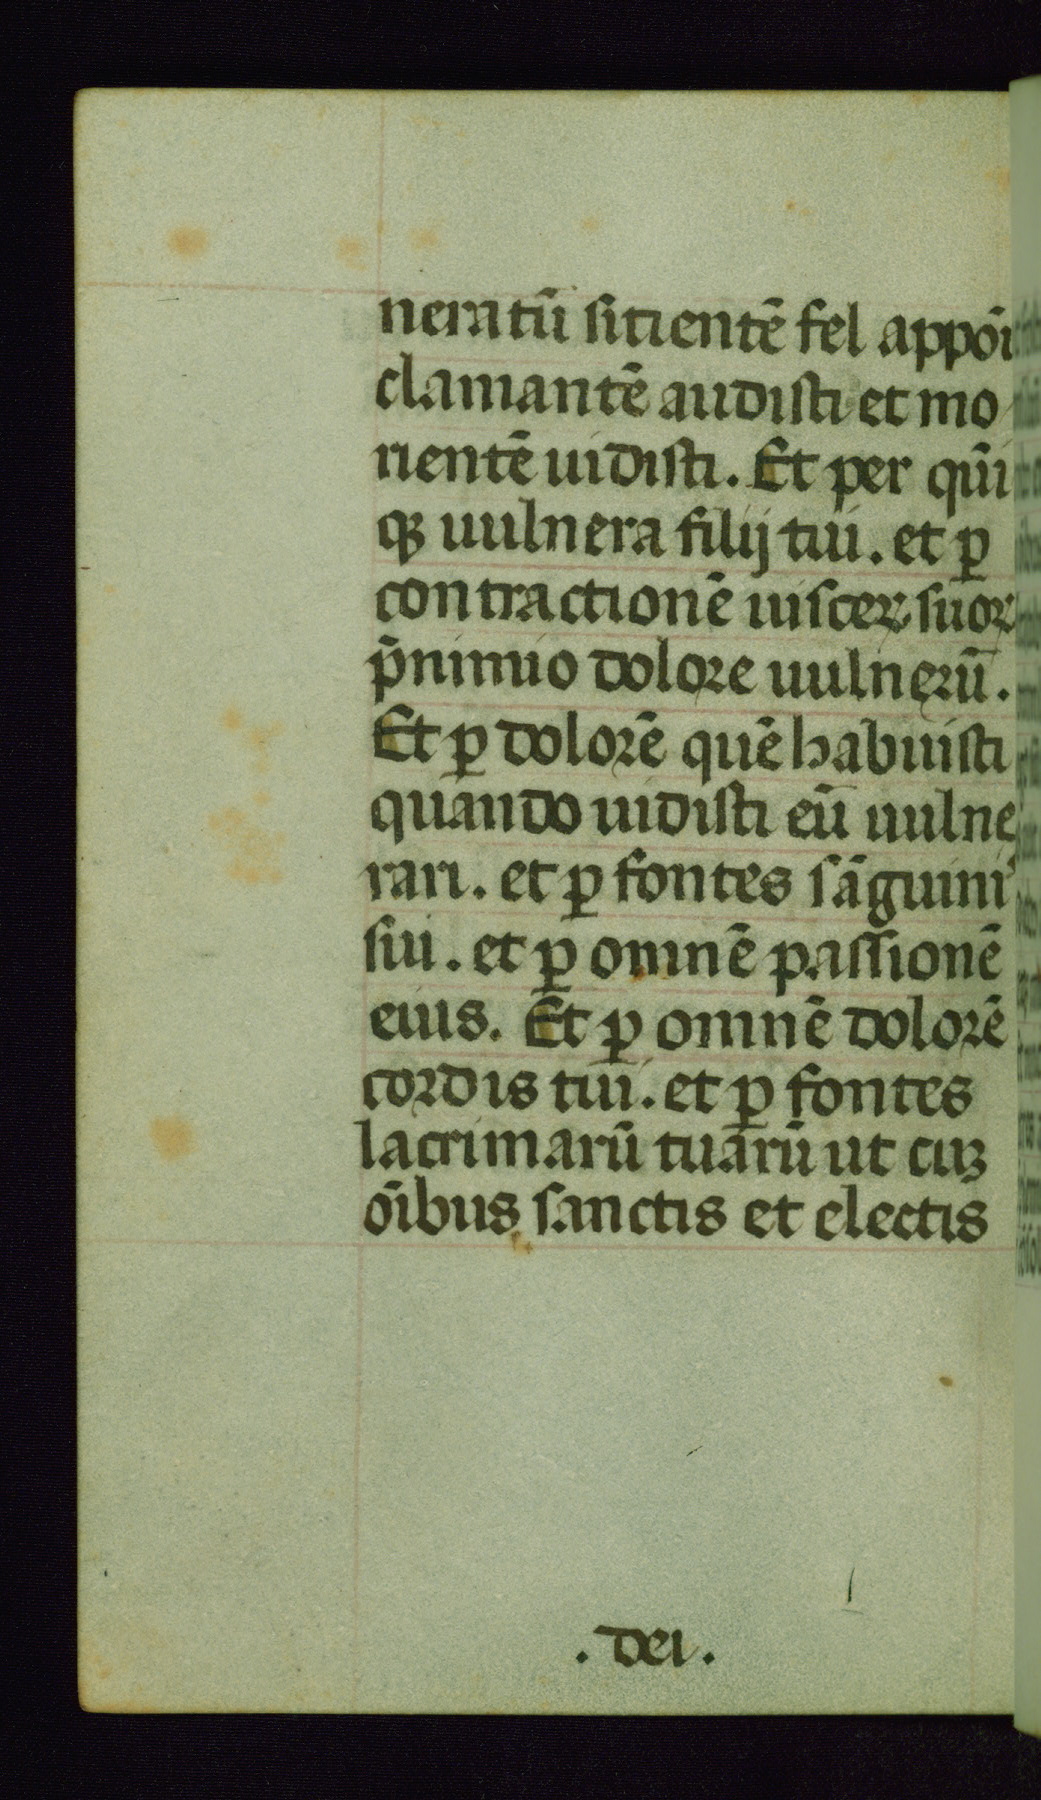 neratū sitientē fel appōi
clamantē audisti et mo
rientē uidisti. Et per qūi
qꝫ uulnera filij tui. et ꝑ
contractionē uisceꝝ suoꝝ
p̄ nimio dolore uulnerū.
Et ꝑ dolorē quē habuisti
quando uidisti eū uulne
rari. et ꝑ fontes sāguini⁹
sui. et ꝑ omnē passionē
eius. Et ꝑ omnē dolorē
cordis tui. et ꝑ fontes
lacrimarū tuarū ut cuꝫ
oībus sanctis et electis
. dei .